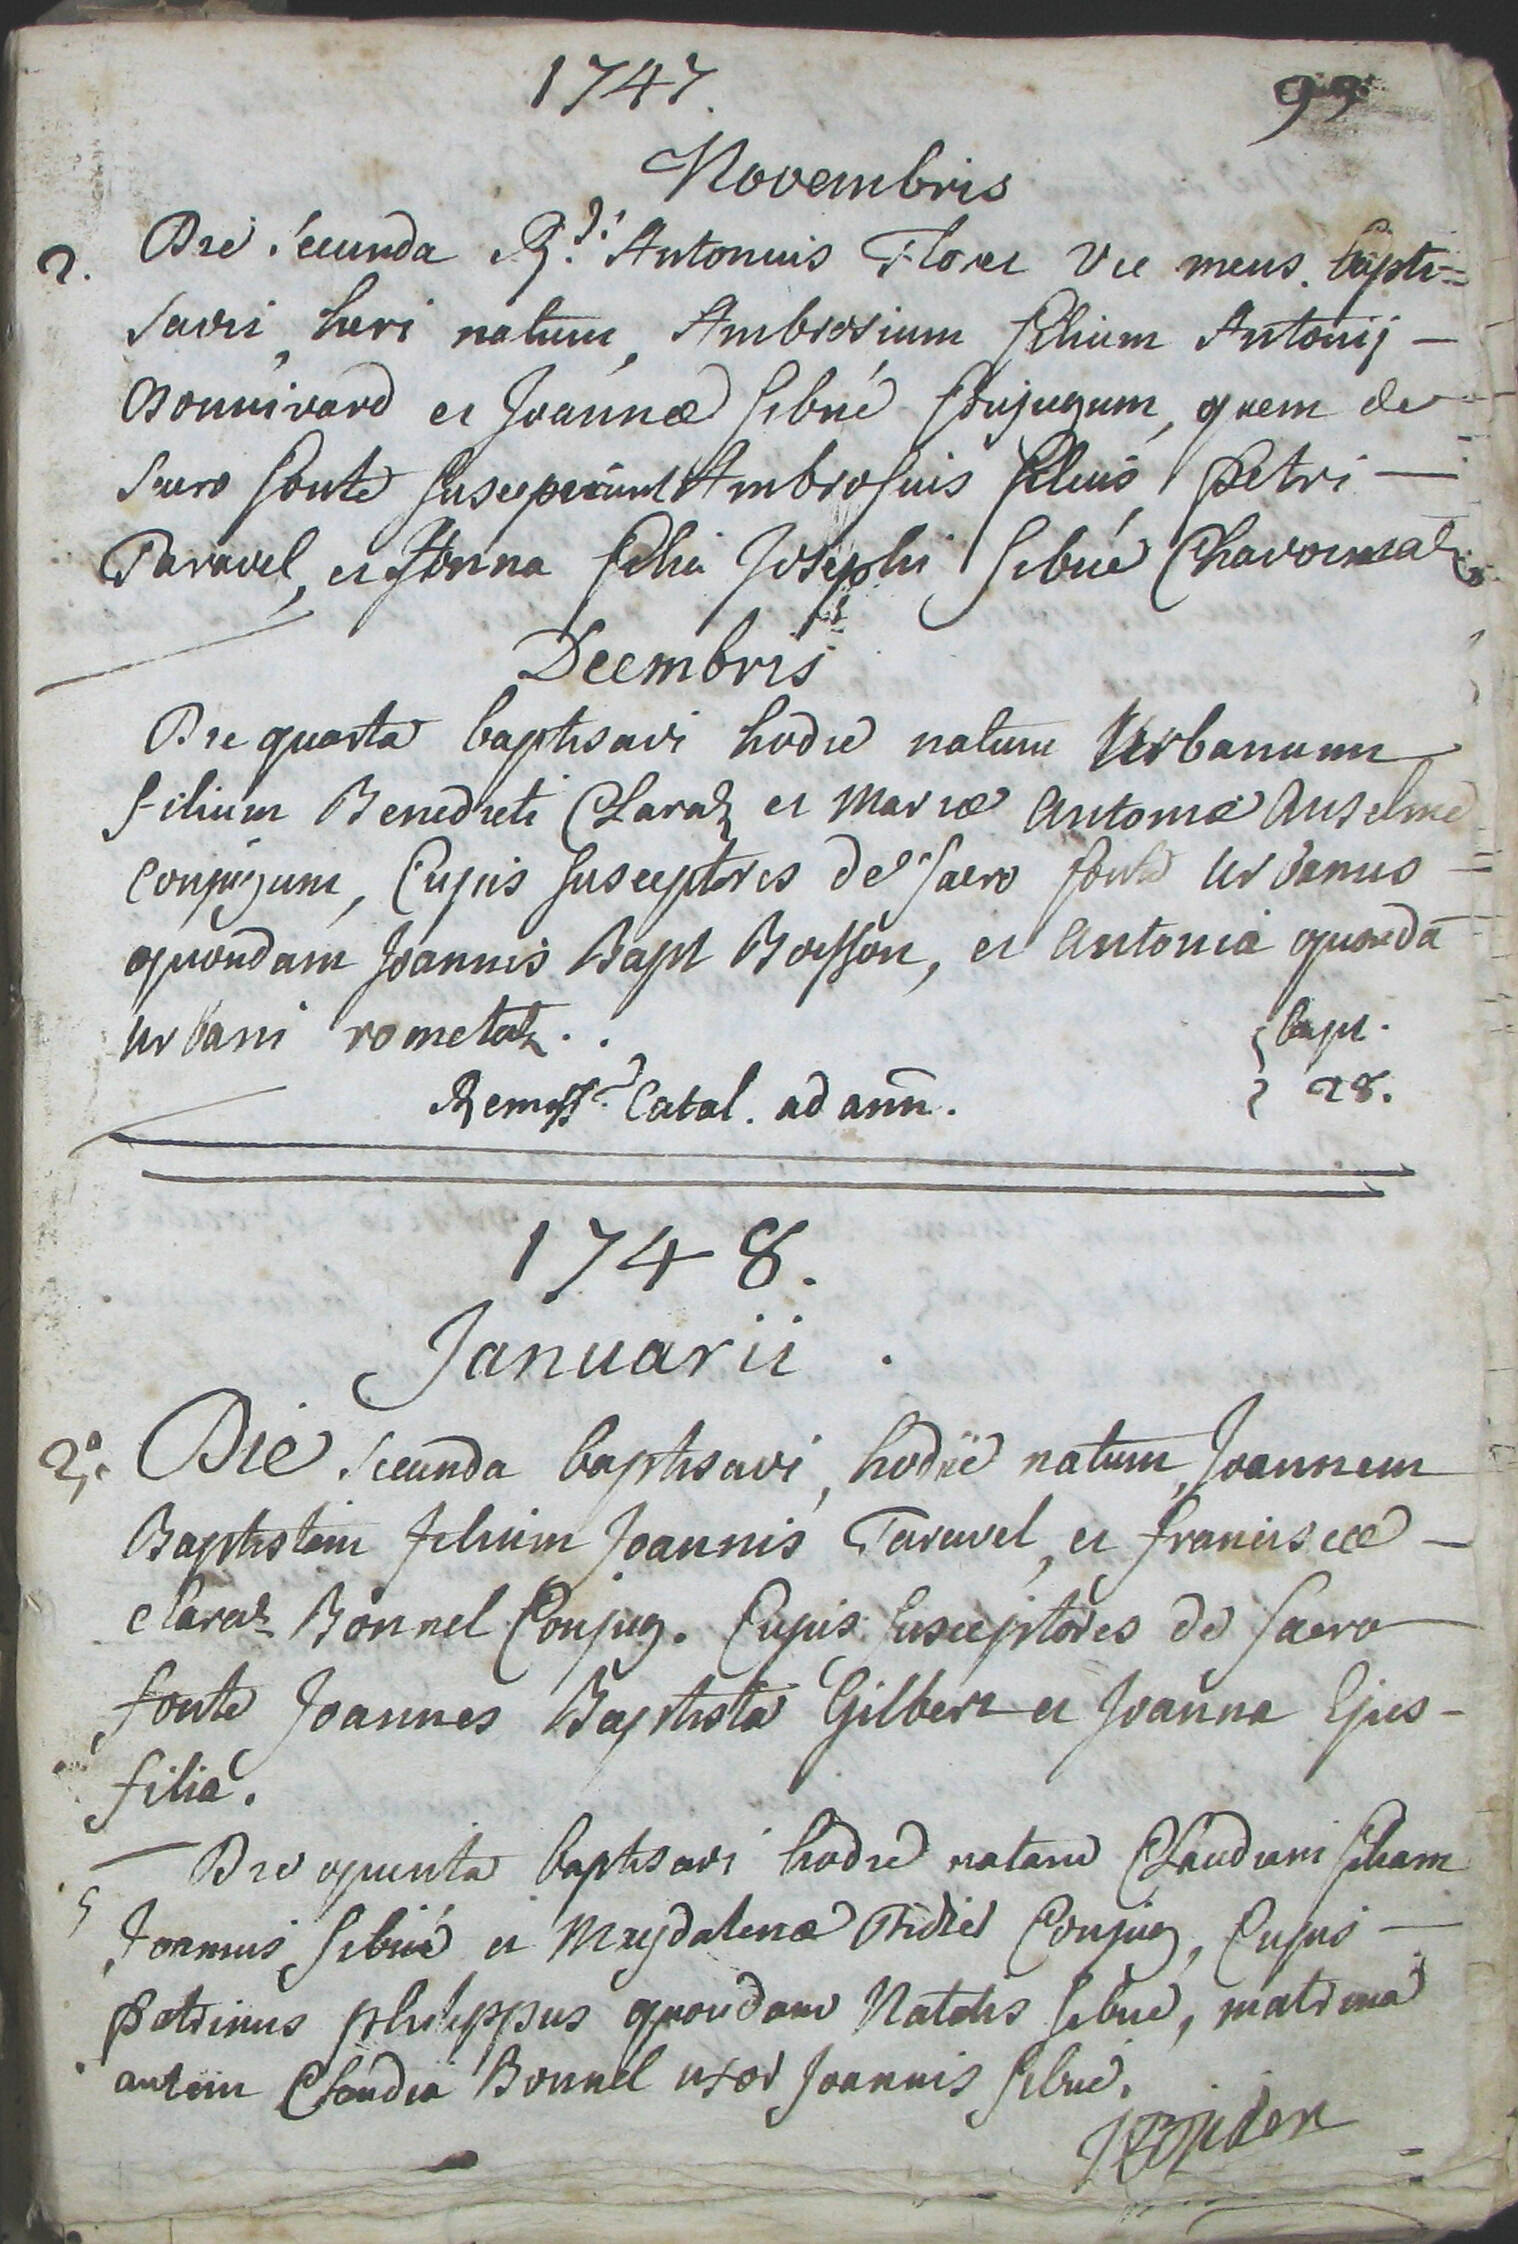 1747.
99
Novembris
2. Die secunda R.dus Antonius Flores vic meus. bapti=
savi, heri natum, Ambrosium filium Antonij —
Bonnivard et Joannæ Sibué Conjugum, quem de
sacro fonte susceperunt Ambrosius filius Petri —
Taravel, et Anna filia Josephi Sibué
Decembris
Die quarta baptisavi hodie natum Urbanum
filium Benedicti Claraz et Mariæ Antoniæ Anselme
conjugum, Cujus susceptores de sacro fonte Urbanus
quondam Joannis Bapt Boisson, et Antonia quondã
Urbani rometaz . .
bapt.
Remiss. Catal. ad ann. 28.
1748.
Januarii .
2.a Die secunda baptisavi, hodie natum, Joannem
Baptistam filium Joannis Taravel, et franciscæ —
claraz Bonnel Conjug. Cujus susceptores de sacro
fonte Joannes Baptista Gilbert et Joanna Ejus —
filia.
5 Die quinta baptisavi hodie natam Claudiam filiam
Joannis Sibué et Magdalenæ Didier Conjug, Cujus —
Patrinus philippus quondam Natalis Sibué, matrina
autem Claudia Bonnel uxor Joannis Sibué.